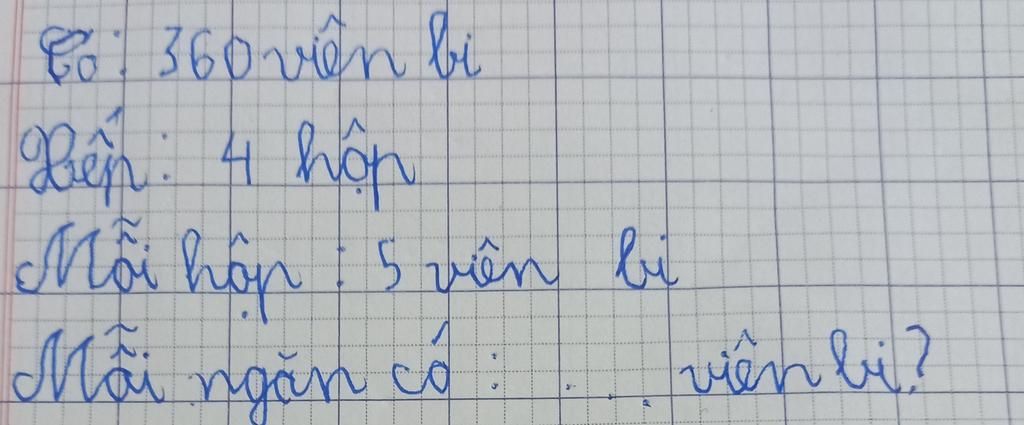 Có: 360 viên bi
Xếp: 4 hộp
Mỗi hộp: 5 viên bi
Mỗi ngăn có: .... viên bi?